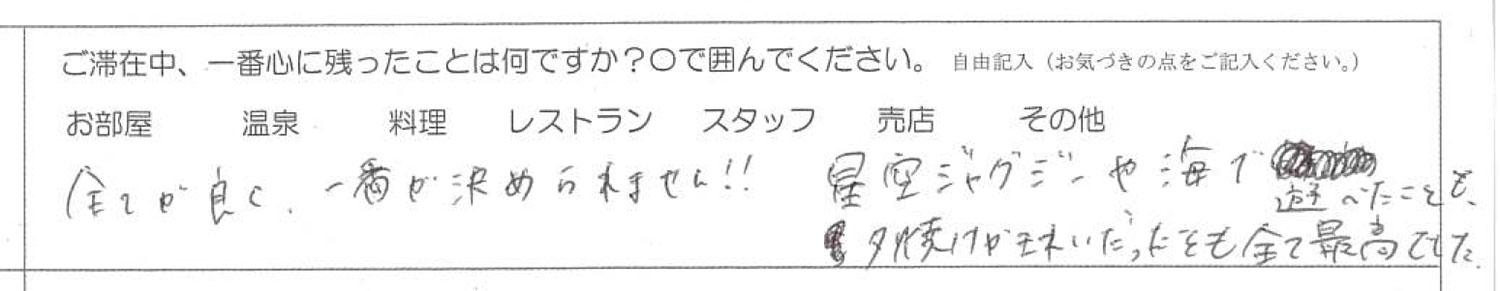 ご滞在中、一番心に残ったことは何ですか？〇で囲んでください。 自由記入（お気づきの点をご記入ください。）
お部屋 温泉 料理 レストラン スタッフ 売店 その他
全てが良く、一番が決められません!! 星空ジャグジーや海で
遊べたことも、
夕焼けがキレイだったことも全て最高でした。